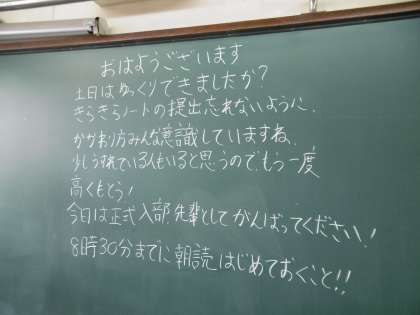 おはようございます
土日はゆっくりできましたか?
きらきらノートの提出忘れないように.
かがおり方みんな意識していますね.
少しうすれている人もいると思うので、もう一度
高くもとう!
今日は正式入部.先輩としてがんばってください!
8時30分までに朝読はじめておくこと!!